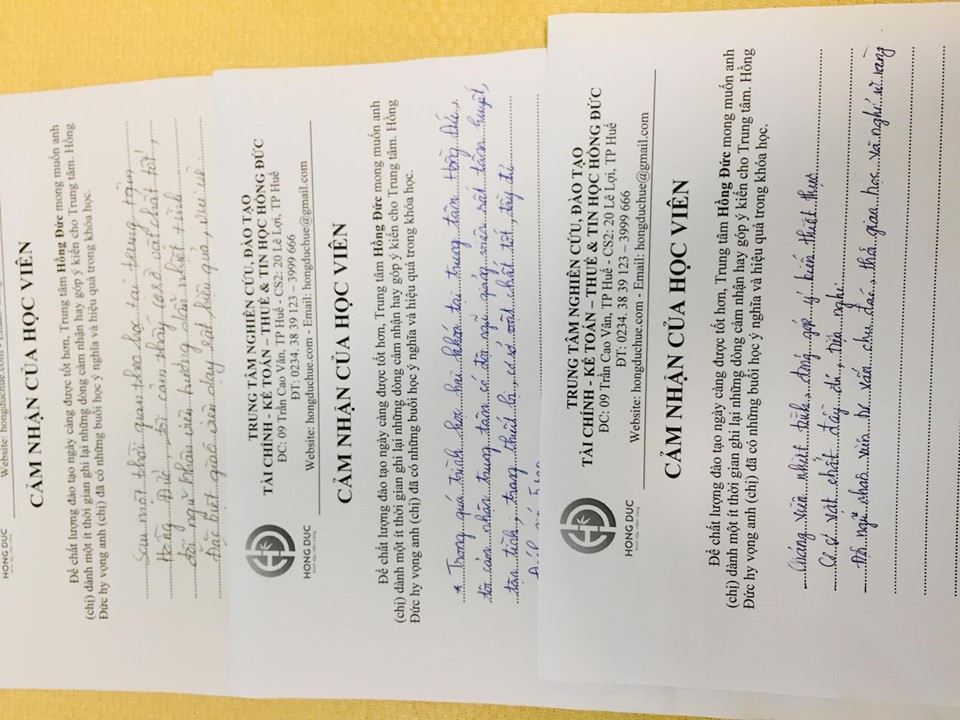 Website: hongduchue.com -
HONG DUC
CẢM NHẬN CỦA HỌC VIÊN
Để chất lượng đào tạo ngày càng được tốt hơn, Trung tâm Hồng Đức mong muốn anh
(chị) dành một ít thời gian ghi lại những dòng cảm nhận hay góp ý kiến cho Trung tâm. Hồng
Đức hy vọng anh (chị) đã có những buổi học ý nghĩa và hiệu quả trong khóa học.
Sau một thời gian theo học tại trung tâm
Hồng Đức, tôi cảm thấy cơ sở vật chất tốt,
đội ngũ nhân viên hướng dẫn nhiệt tình
Đặc biệt giáo viên dạy rất hiệu quả, vui vẻ.
TRUNG TÂM NGHIÊN CỨU, ĐÀO TẠO
TÀI CHÍNH - KẾ TOÁN – THUẾ & TIN HỌC HỒNG ĐỨC
ĐC: 09 Trần Cao Vân, TP Huế - CS2: 20 Lê Lợi, TP Huế
ĐT: 0234. 38 39 123 – 3999 666
Website: hongduchue.com - Email: hongduchue@gmail.com
HONG DUC
CẢM NHẬN CỦA HỌC VIÊN
Để chất lượng đào tạo ngày càng được tốt hơn, Trung tâm Hồng Đức mong muốn anh
(chị) dành một ít thời gian ghi lại những dòng cảm nhận hay góp ý kiến cho Trung tâm. Hồng
Đức hy vọng anh (chị) đã có những buổi học ý nghĩa và hiệu quả trong khóa học.
* Trong quá trình học hai khóa tại trung tâm Hồng Đức,
tôi cảm nhận trung tâm có đội ngũ giảng viên rất tâm huyết,
tận tình, trang thiết bị, cơ sở vật chất tốt, đầy đủ
TRUNG TÂM NGHIÊN CỨU, ĐÀO TẠO
TÀI CHÍNH - KẾ TOÁN – THUẾ & TIN HỌC HỒNG ĐỨC
ĐC: 09 Trần Cao Vân, TP Huế - CS2: 20 Lê Lợi, TP Huế
ĐT: 0234. 38 39 123 – 3999 666
Website: hongduchue.com - Email: hongduchue@gmail.com
HONG DUC
CẢM NHẬN CỦA HỌC VIÊN
Để chất lượng đào tạo ngày càng được tốt hơn, Trung tâm Hồng Đức mong muốn anh
(chị) dành một ít thời gian ghi lại những dòng cảm nhận hay góp ý kiến cho Trung tâm. Hồng
Đức hy vọng anh (chị) đã có những buổi học ý nghĩa và hiệu quả trong khóa học.
Giảng viên nhiệt tình, đóng góp ý kiến thiết thực
Cơ sở vật chất đầy đủ, tiện nghi
Đội ngũ nhân viên tư vấn chu đáo, thời gian học và nghỉ rõ ràng